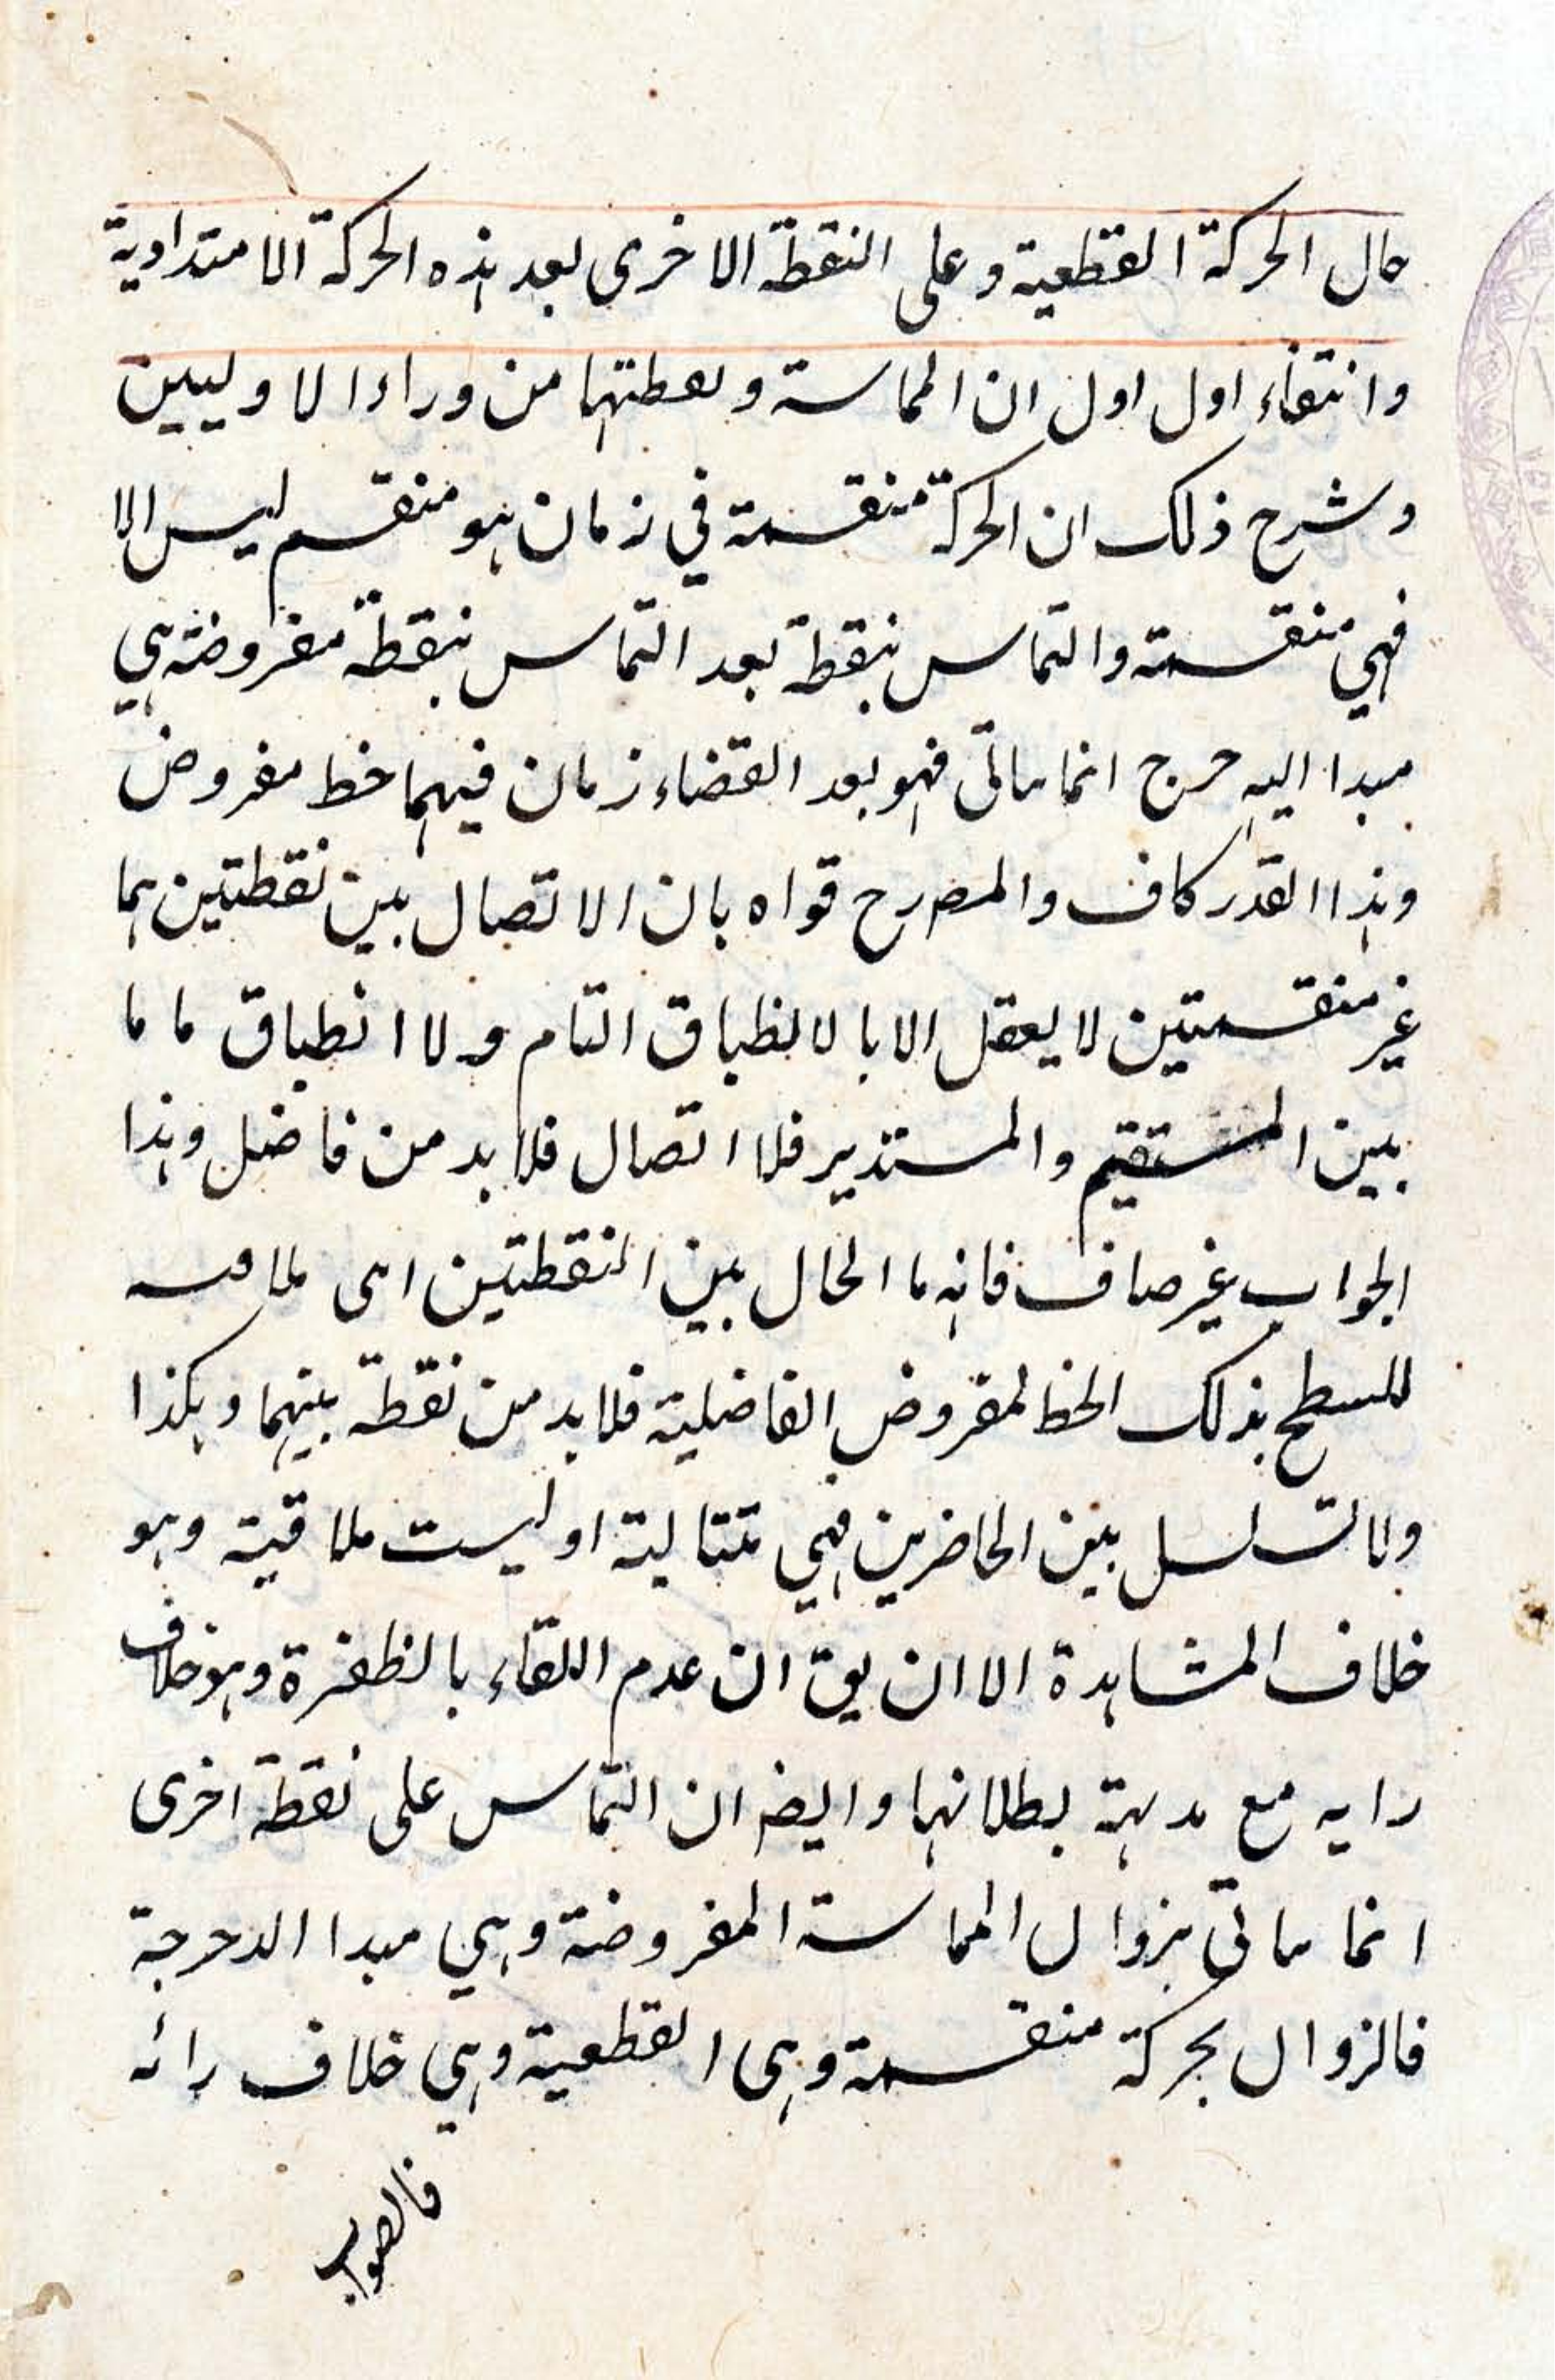 حال الحركة القطعية وعلى النقطة الاخرى بعد هذه الحركة الامتدادية
وانتفاء اول اول ان المماسة ونقطتهما من وراء الاوليين
وشرح ذلك ان الحركة منقسمة في زمان هو منقسم ليس الا
فهي منقسمة والتماس بنقطة بعد التماس بنقطة مفروضة هي
مبدا اليه انما ياتي فهو بعد انقضاء زمان فيهما خط مفروض
وهذا القدر كاف والمصرح قواه بان الاتصال بين نقطتين هما
غير منقسمتين لا يعقل الا بالانطباق التام ولا انطباق ما ما
بين المستقيم والمستدير فلا اتصال فلا بد من فاضل وهذا
الجواب غير صاف فانه ما الحال بين النقطتين اى
للسطح بذلك الخط لمفروض الفاضلية فلا بد من نقطة بينهما وهكذا
ولا تسلسل بين الحاضرين فهي متتالية او ليست ملاقية وهو
خلاف المشاهدة الا ان يق ان عدم اللقاء بالطفرة وهو خلاف
رايه مع بدهة بطلانها وايضا ان التماس على نقطة اخرى
انما ياتي بزوال المماسة المفروضة وهي مبدا الدحرجة
فالزوال بحركة منقسمة وهى القطعية وهي خلاف رائه
فالصواب